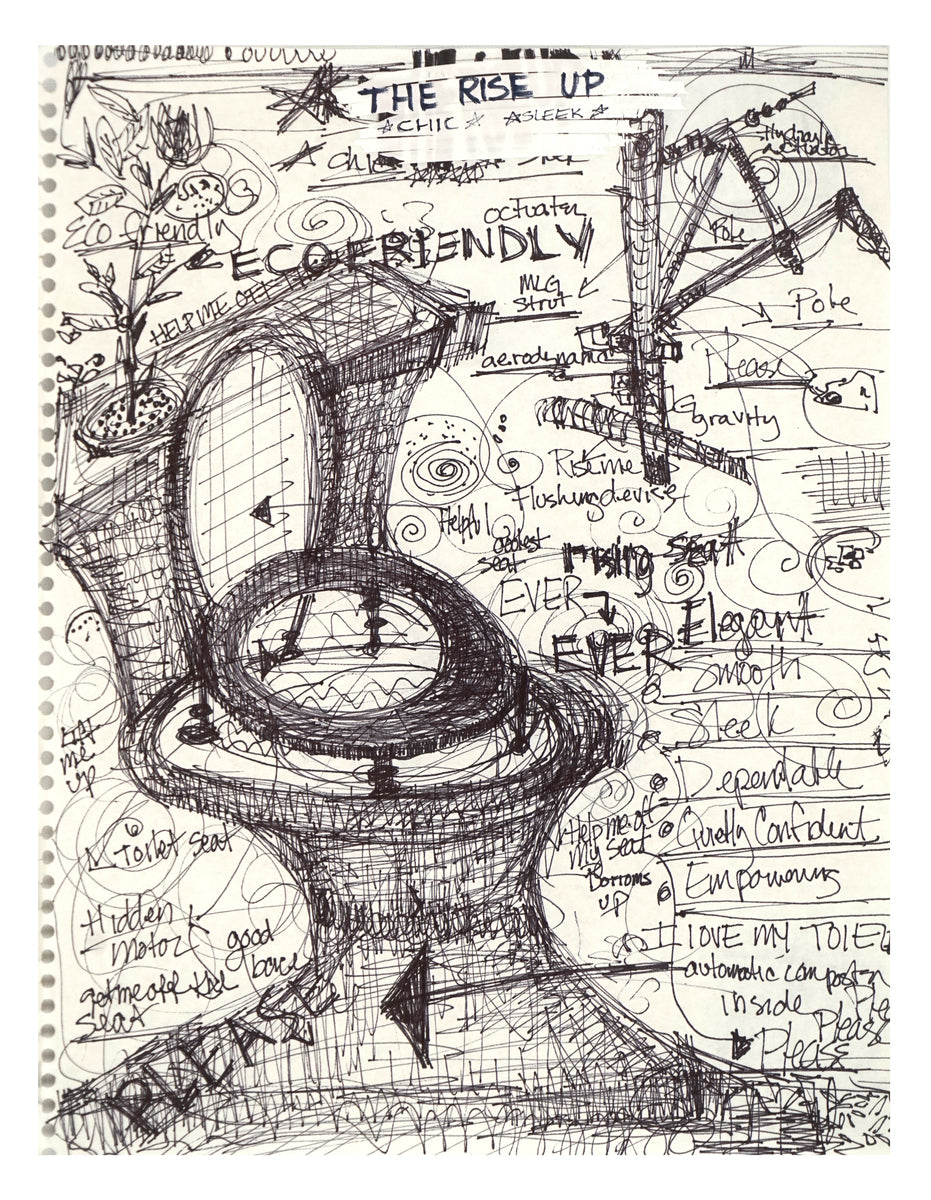 THE RISE UP
CHIC SLEEK
Hydraulic
actuator
Eco friendly
actuater
ECOFRIENDLY
Pole
HELP ME OFF
MLG
Strut
Pole
aerodynamic
Please
gravity
Rise me
flushing devise
Helpful
coolest
seat
rising seat
EVER
EVER
Elegant
Smooth
Sleek
Dependable
Quietly Confident
Empowering
Let
me
up
Toilet Seat
Help me off
my seat
Bottoms
up
Hidden
motor
good
get me off
seat
I LOVE MY TOILET
automatic compost
inside
Please
Please
PLEASE